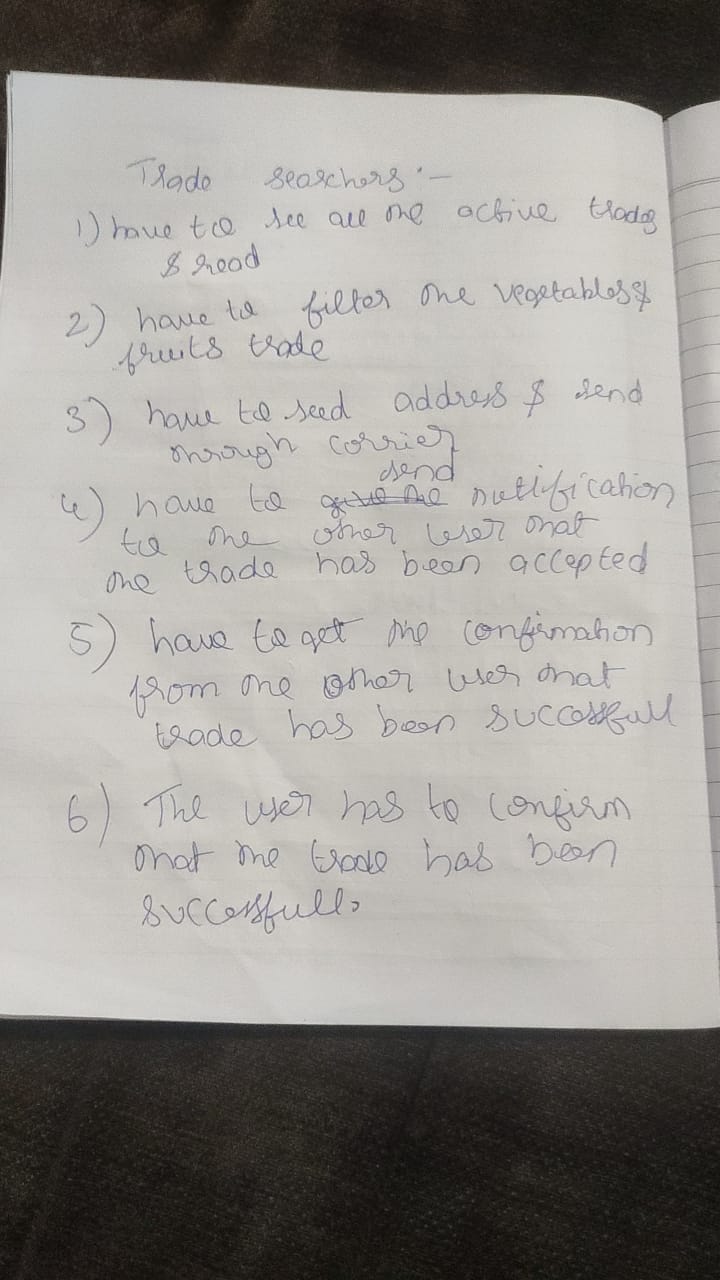 Trade searchers :-
1) have to see all the active trades
& read
2) have to filter the vegetables &
fruits trade
3) have to seed address & send
through corrier
send
4) have to give the notification
to the other user that
the trade has been accepted
5) have to get the confirmation
from the other user that
trade has been successfull
6) The user has to confirm
that the trade has been
successfull.